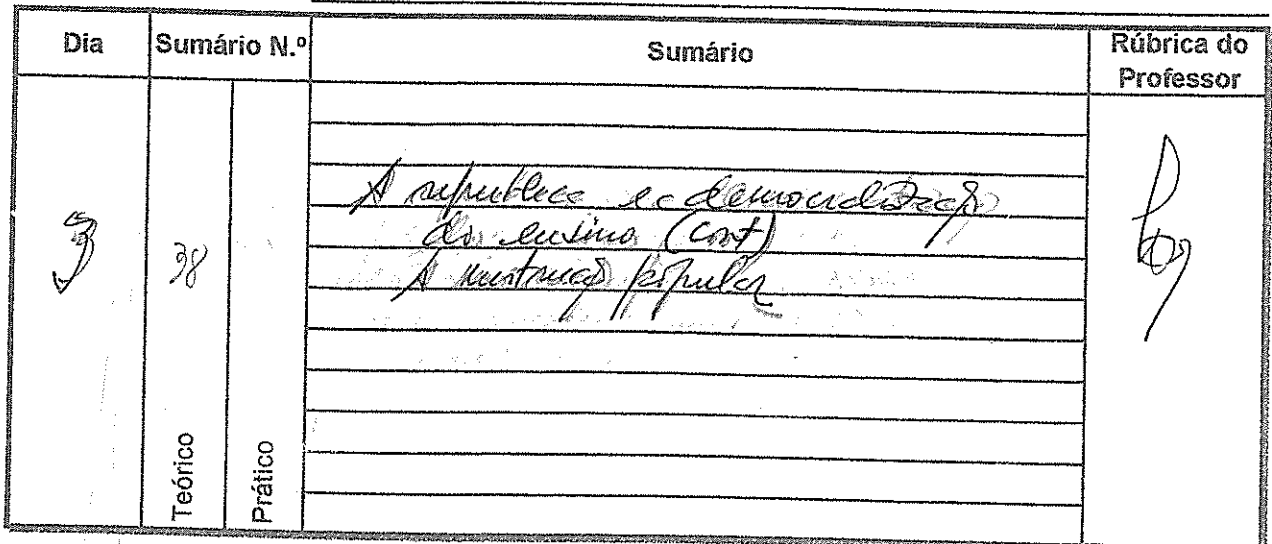 Dia Sumário N.º Sumário Rúbrica do
Professor
3 38
A republica e a democratização
do ensino (Cont)
A instrução popular
Teórico Prático